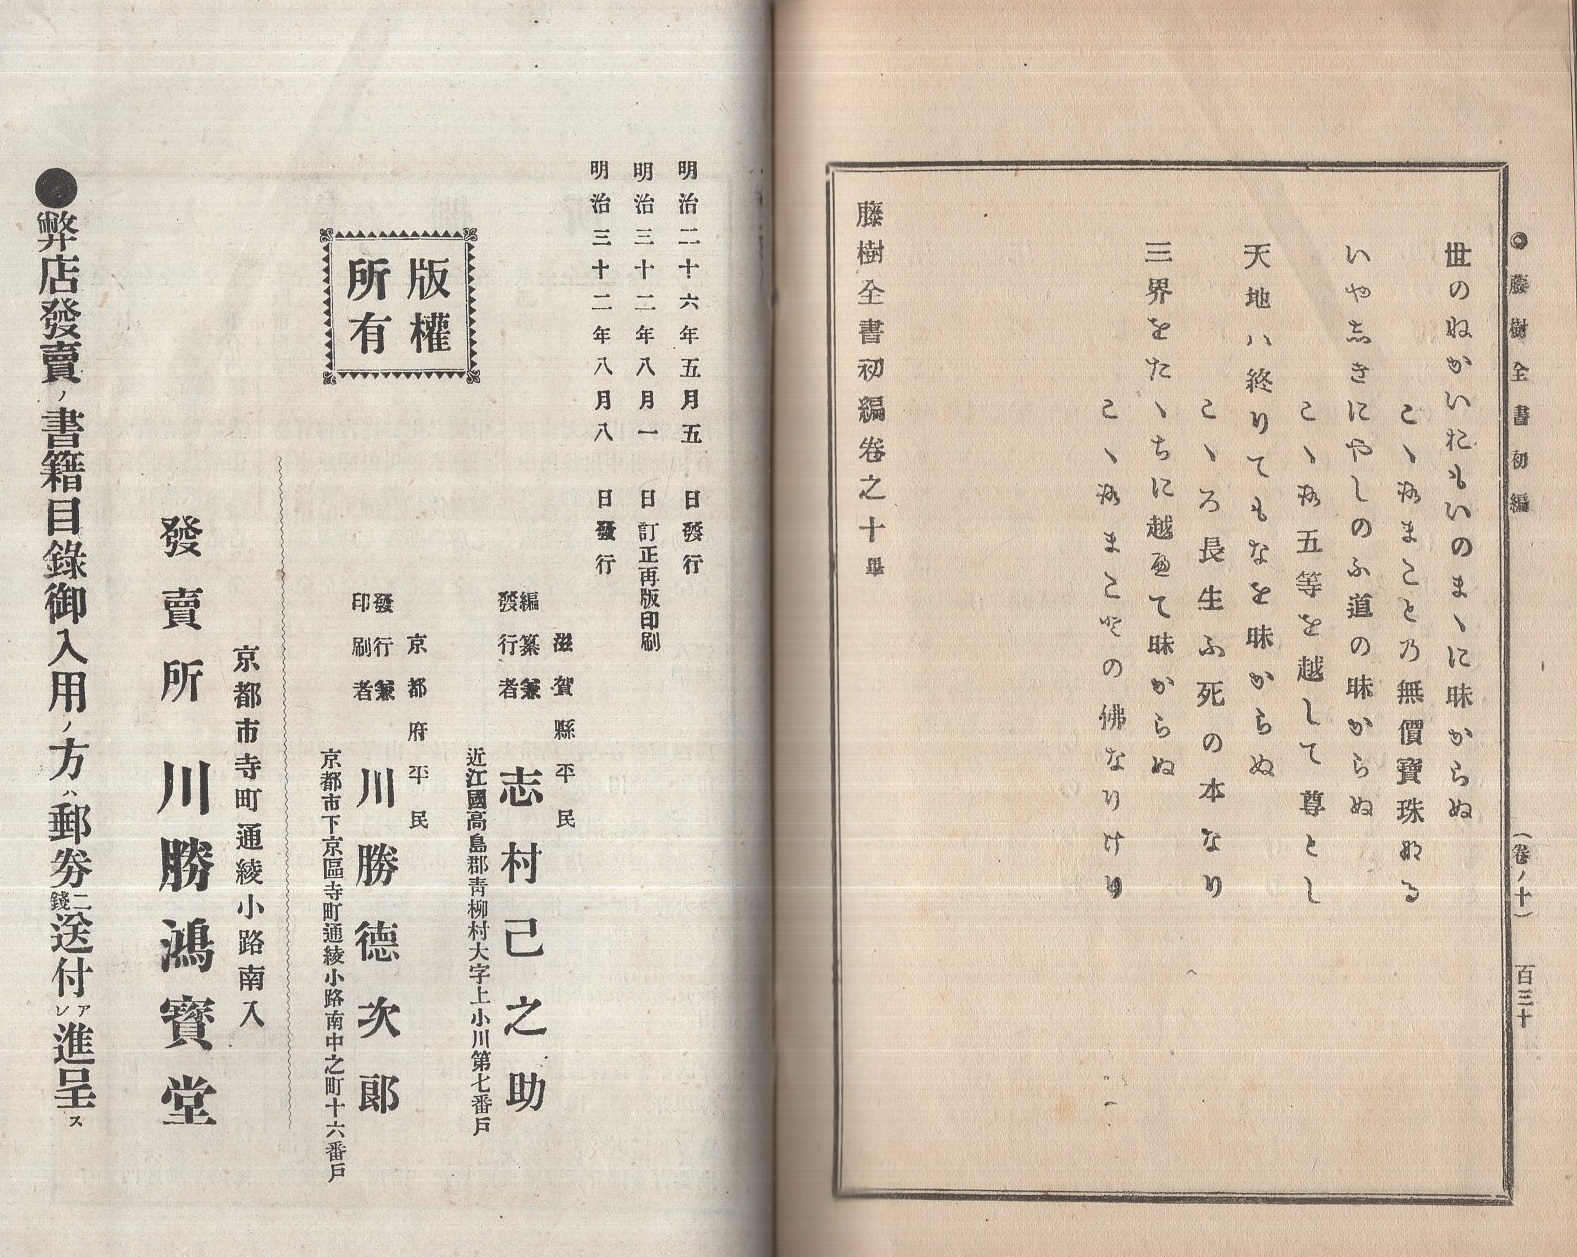 ◉藤樹全書初編 (卷ノ十) 百三十
世のねかいにれもいのまヽに昧からぬ
こヽろまこと乃無價寶珠ぬる
いや志きにやしのふ道の昧からぬ
こヽろ五等を越して尊とし
天地ハ終りてもなを昧からぬ
こヽろ長生ふ死の本なり
三界をたヽちに越ゑて昧からぬ
こヽろまことの佛なりけり
藤樹全書初編卷之十畢
明治二十六年五月五日發行
明治三十二年八月一日訂正再版印刷
明治三十二年八月八日發行
版權
所有
滋賀縣平民
編纂兼
發行者
志村己之助
近江國高島郡青柳村大字上小川第七番戸
京都府平民
發行兼
印刷者
川勝德次郎
京都市下京區寺町通綾小路南中之町十六番戸
京都市寺町通綾小路南入
發賣所 川勝鴻寳堂
●弊店發賣ノ書籍目錄御入用ノ方ハ郵劵二錢送付アレ進呈ス